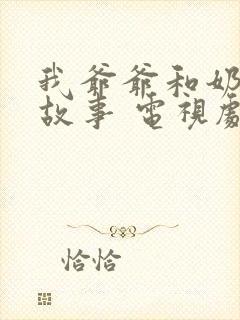 我爺爺和奶
故事 電視劇
恰恰